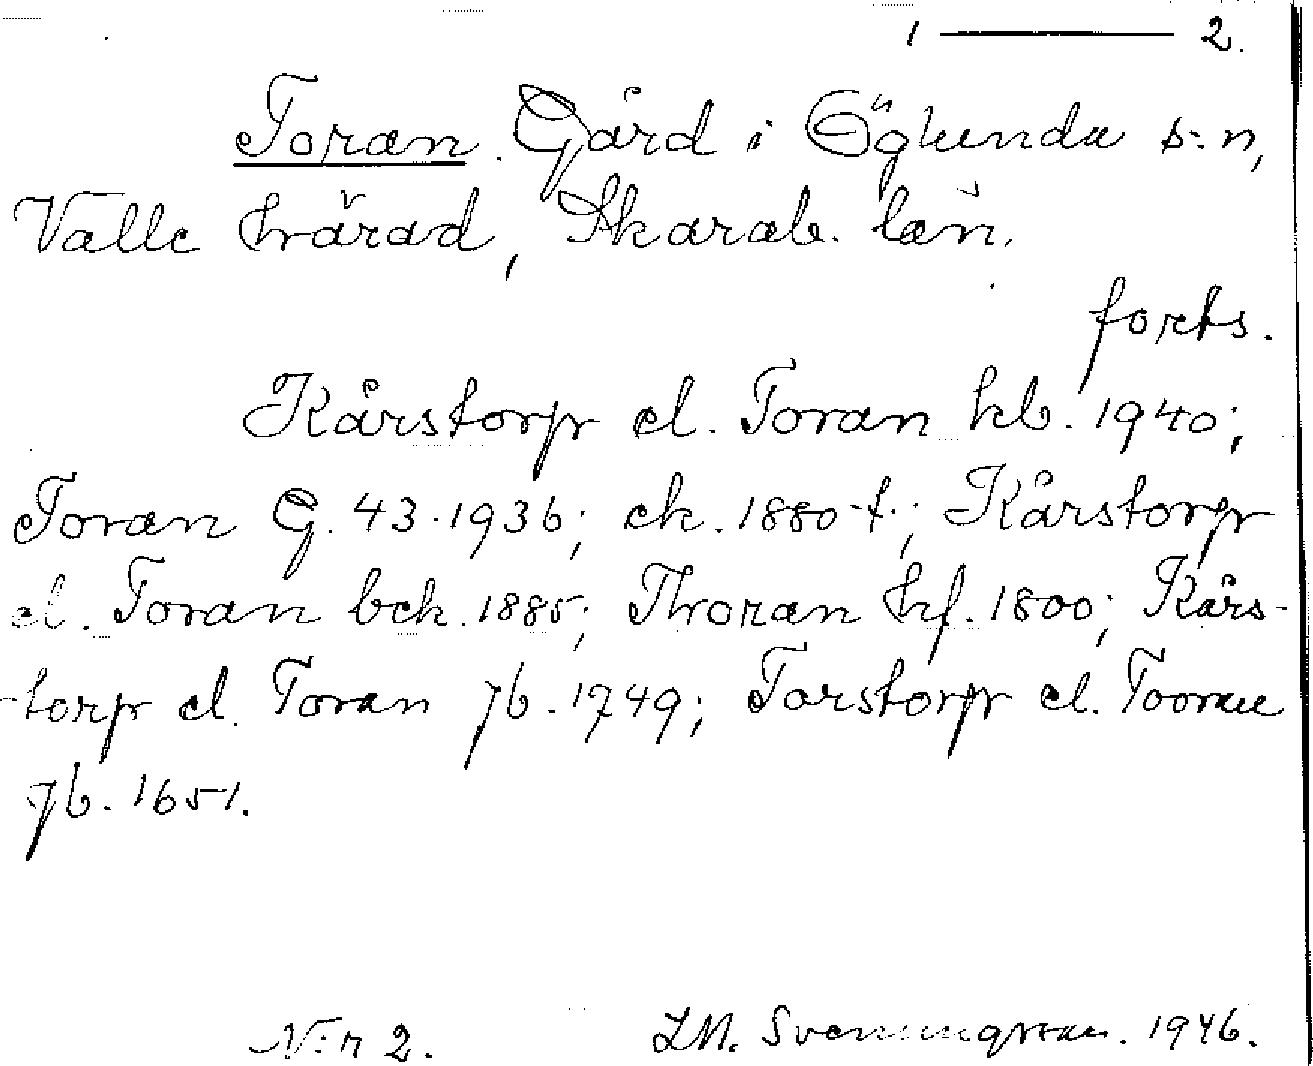 1 — 2.
Toran. Gård i Öglunda s:n,
Valle härad, Skarab. län.
forts.
Kårstorp el. Toran hb. 1940;
Toran G. 43. 1936; ek. 1880-t.; Kårstorp
el. Toran bek. 1885; Thoran hf. 1800; Kårs-
-torp el. Toran jb. 1749; Torstorp el. Tooran
jb. 1651.
N:r 2. I.M. Svenningsson. 1946.